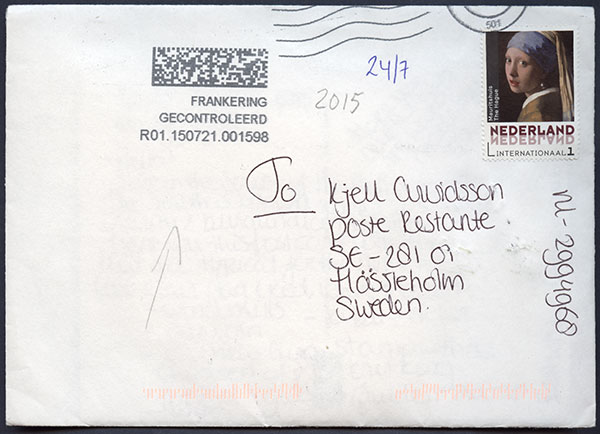 501
24/7
2015
FRANKERING
GECONTROLEERD
R01.150721.001598
Mauritshuis
The Hague
NEDERLAND
NEDERLAND
INTERNATIONAAL 1
To
Kjell Arvidsson
poste Restante
SE-281 03
Hässleholm
Sweden.
nl-2994960